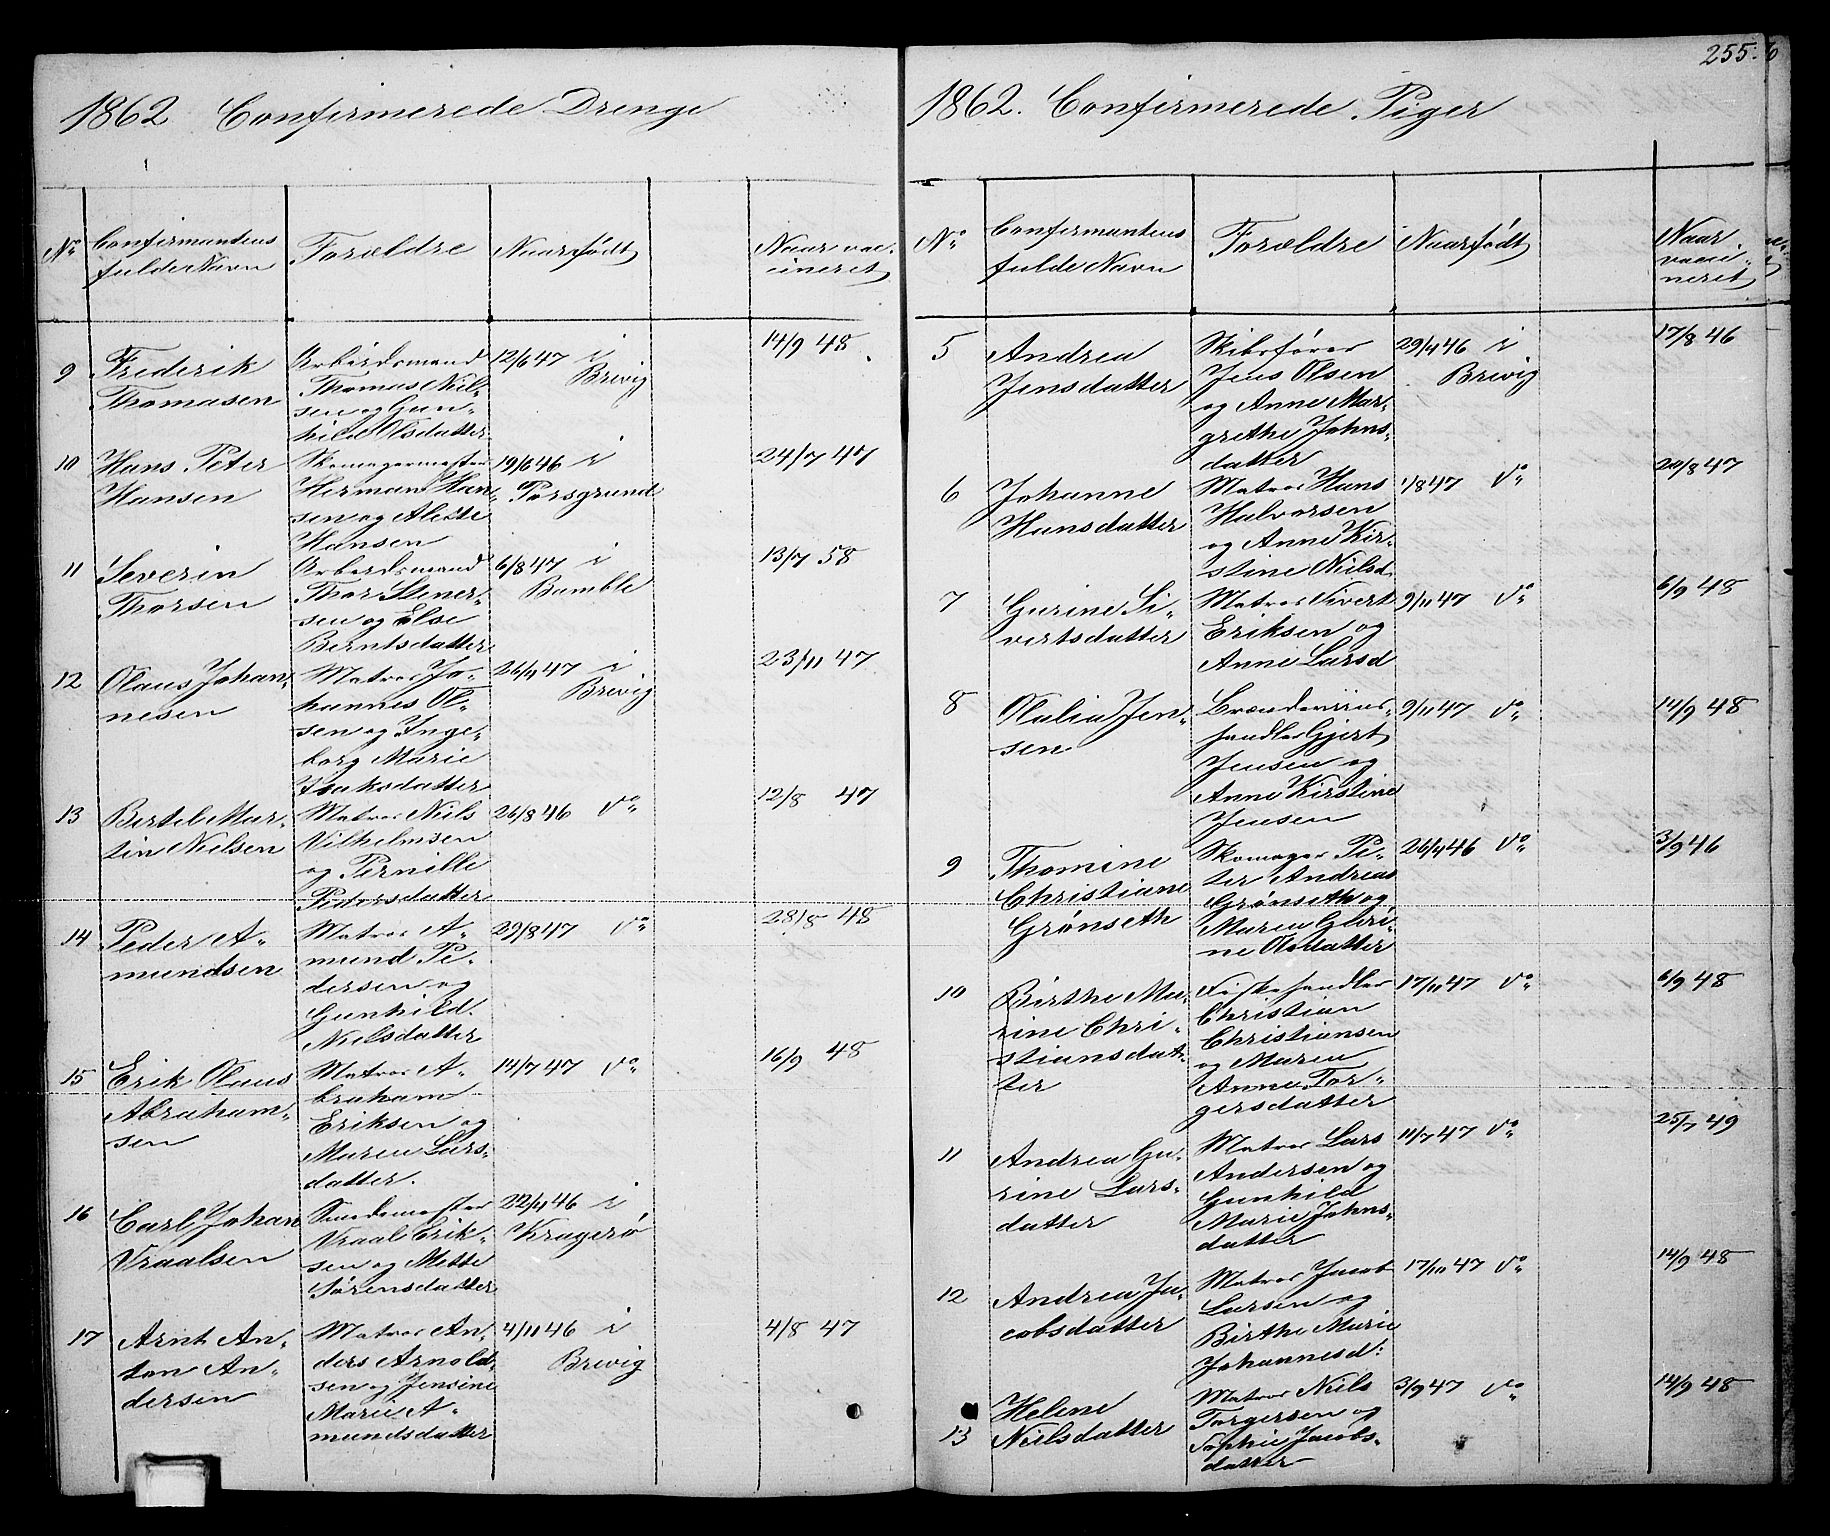 255.
1862 Confirmerede Drenge
No Confirmantens fulde Navn Forældre Naar født Naar vaccineret
9 Frederik Thomasen
Arbeidsmand Thomas Nielsen og Gunhild Olsdatter
12/6 47 i Brevig
14/9 48
10 Hans Peter Hansen
Skomagermester Herman Hansen og Alette Hansen
19/6 46 i Porsgrund
24/7 47
11 Severin Thorsen
Arbeidsmand Thor Stenersen og Else Berntsdatter
6/8 47 i Bamble
13/7 58
12 Olaus Johannesen
Matros Johannes Olsen og Ingeborg Marie Isaksdatter
26/9 47 i Brevig
23/11 47
13 Bertel Martin Nielsen
Matros Niels Vilhelmsen og Pernille Pedersdatter
26/8 46 Do
12/8 47
14 Peder Amundsen
Matros Amund Pedersen og Gunhild Nielsdatter
29/8 47 Do
28/8 48
15 Erik Olaus Abrahamsen
Matros Abraham Eriksen og Maren Larsdatter.
14/7 47 Do
16/9 48
16 Carl Johan Vraalsen
Smedemester Vraal Eriksen og Mette Sørensdatter
22/4 46 i Kragerö
17 Arnt Anton Andersen
Matros Anders Arnoldsen og Jensine Marie Amundsdatter
4/11 46 i Brevig
4/8 47
1862. Confirmerede Piger
No Confirmantens fulde Navn Forældre Naar født Naar vaccineret
5 Andrea Jensdatter
Skibsfører Jens Olsen og Anne Margrethe Johnsdatter
29/4 46 i Brevig
17/8 46
6 Johanne Hansdatter
Matros Hans Halvorsen og Anne Kirstine Nielsd.
1/8 47 Do
20/8 47
7 Gurine Sivertsdatter
Matros Sivert Eriksen og Anne Larsd
9/11 47 Do
6/9 48
8 Olalia Jensen
Brændeviinshandler Gjert Jensen og Anne Kirstine Jensen
9/11 47 Do
14/9 48
9 Thomine Christiane Grønseth
Skomager Peter Andreas Grønseth og Maren Gurine Olsdatter
26/4 46 Do
3/9 46
10 Birthe Marine Christiansdatter
Fiskehandler Christian Christiansen og Maren Anne Torgersdatter
17/11 47 Do
6/9 48
11 Andrea Gurine Larsdatter
Matros Lars Andersen og Gunhild Marie Johnsdatter
14/7 47 Do
25/7 49
12 Andrea Jacobsdatter
Matros Jacob Larsen og Birthe Marie Johannesd:
17/10 47 Do
14/9 48
13 Helene Nielsdatter
Matros Niels Torgersen og Sophie Jacobsdatter
3/9 47 Do
14/9 48